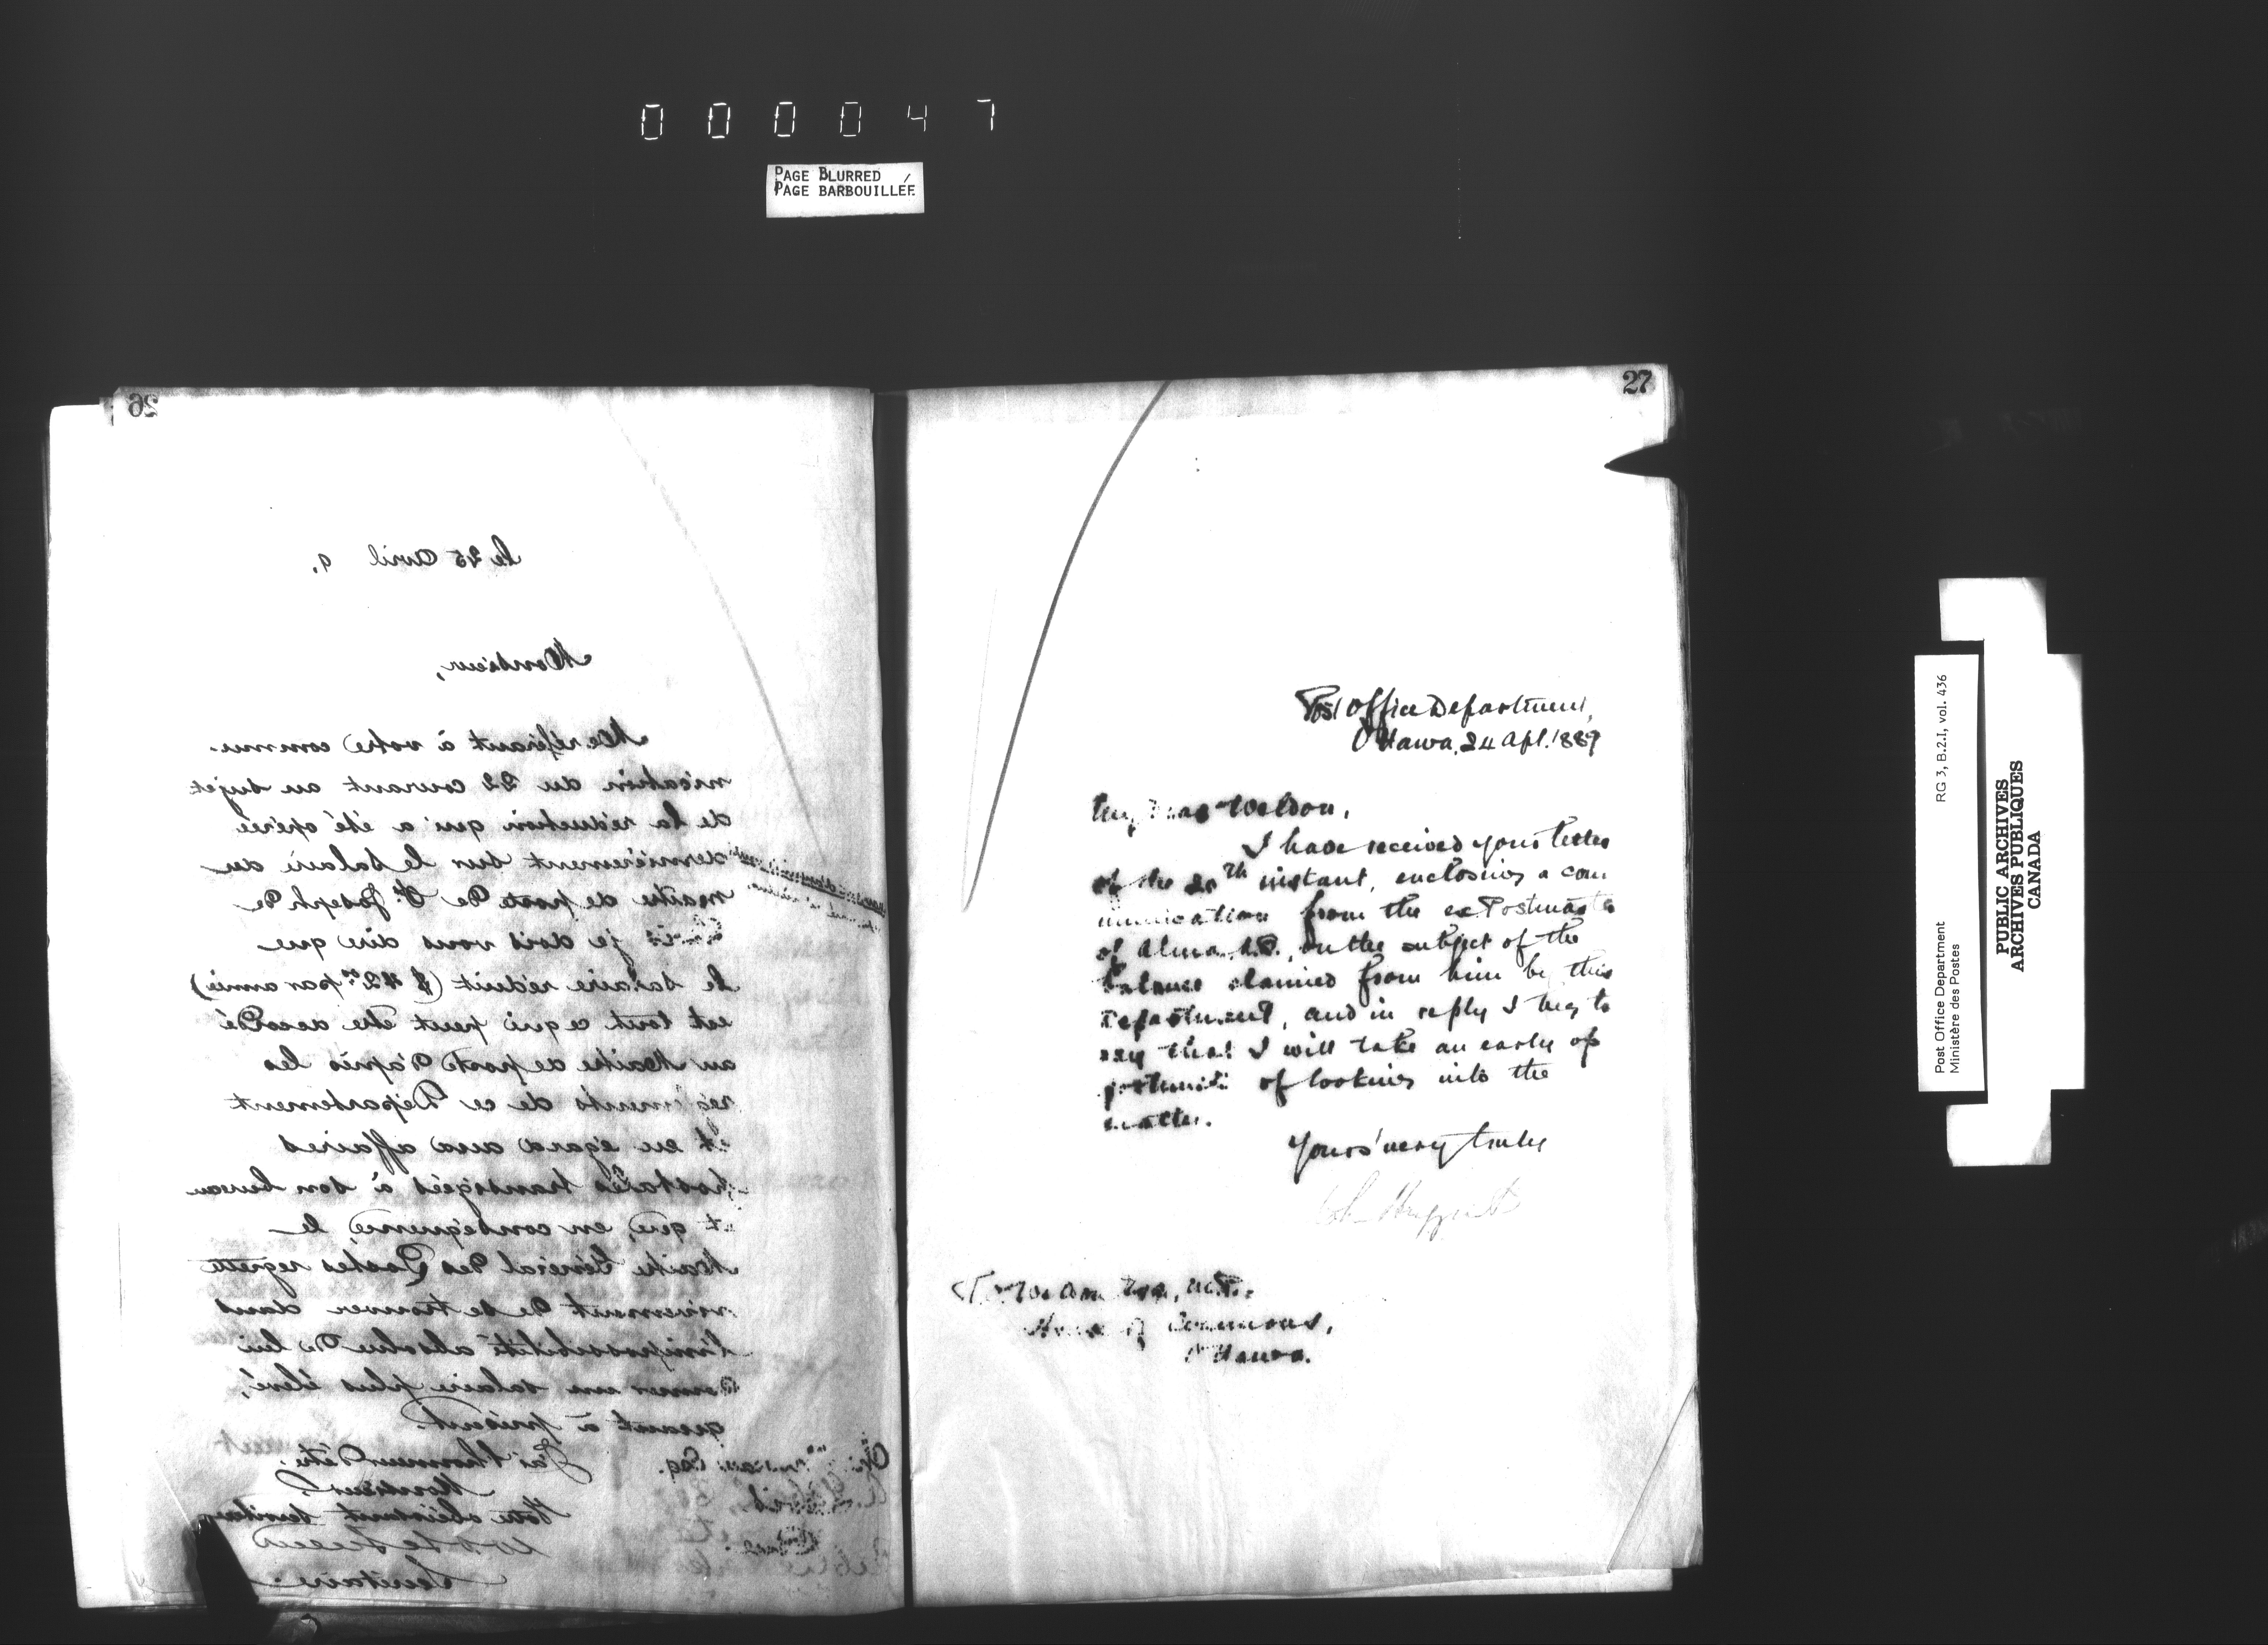 000047
PAGE BLURRED
PAGE BARBOUILLÉE
26
Le 25 Avril 9.
Monsieur,
Me référant à votre commu-
nication du 22 courant au sujet
de la réduction qui a été opérée
dernièrement sur le salaire du
maître de poste de St. Joseph de
je dois vous dire que
le salaire réduit ($42 00 par année)
est tout ce qui peut être accordé
au Maître de poste d'après les
de ce Département
et eu égard aux affaires
postales transigées à son bureau
et que, en conséquence, le
Maître Général des Postes regrette
vivement de se trouver dans
l'impossibilité absolue de lui
donner un salaire plus élevé,
quant à présent.
J'ai l'honneur d'être,
Monsieur,
Votre obéissant serviteur
Secrétaire.
Esq.
27
Post Office Department,
Ottawa, 24 Apl. 1889
My Dear Weldon,
I have received your letter
of the 20th instant, enclosing a com
munication from the ex Postmaster
of Alma, N.B., on the subject of the
balance claimed from him by this
Department, and in reply I beg to
say that I will take an early op
portunity of looking into the
matter.
Yours very truly
John Haggart
Weldon Esq., M.P.,
House of Commons,
Ottawa.
Post Office Department
Ministère des Postes
RG 3, B.2.I, vol. 436
PUBLIC ARCHIVES
ARCHIVES PUBLIQUES
CANADA